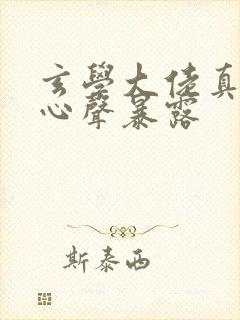 玄學大佬真
心聲暴露
斯泰西